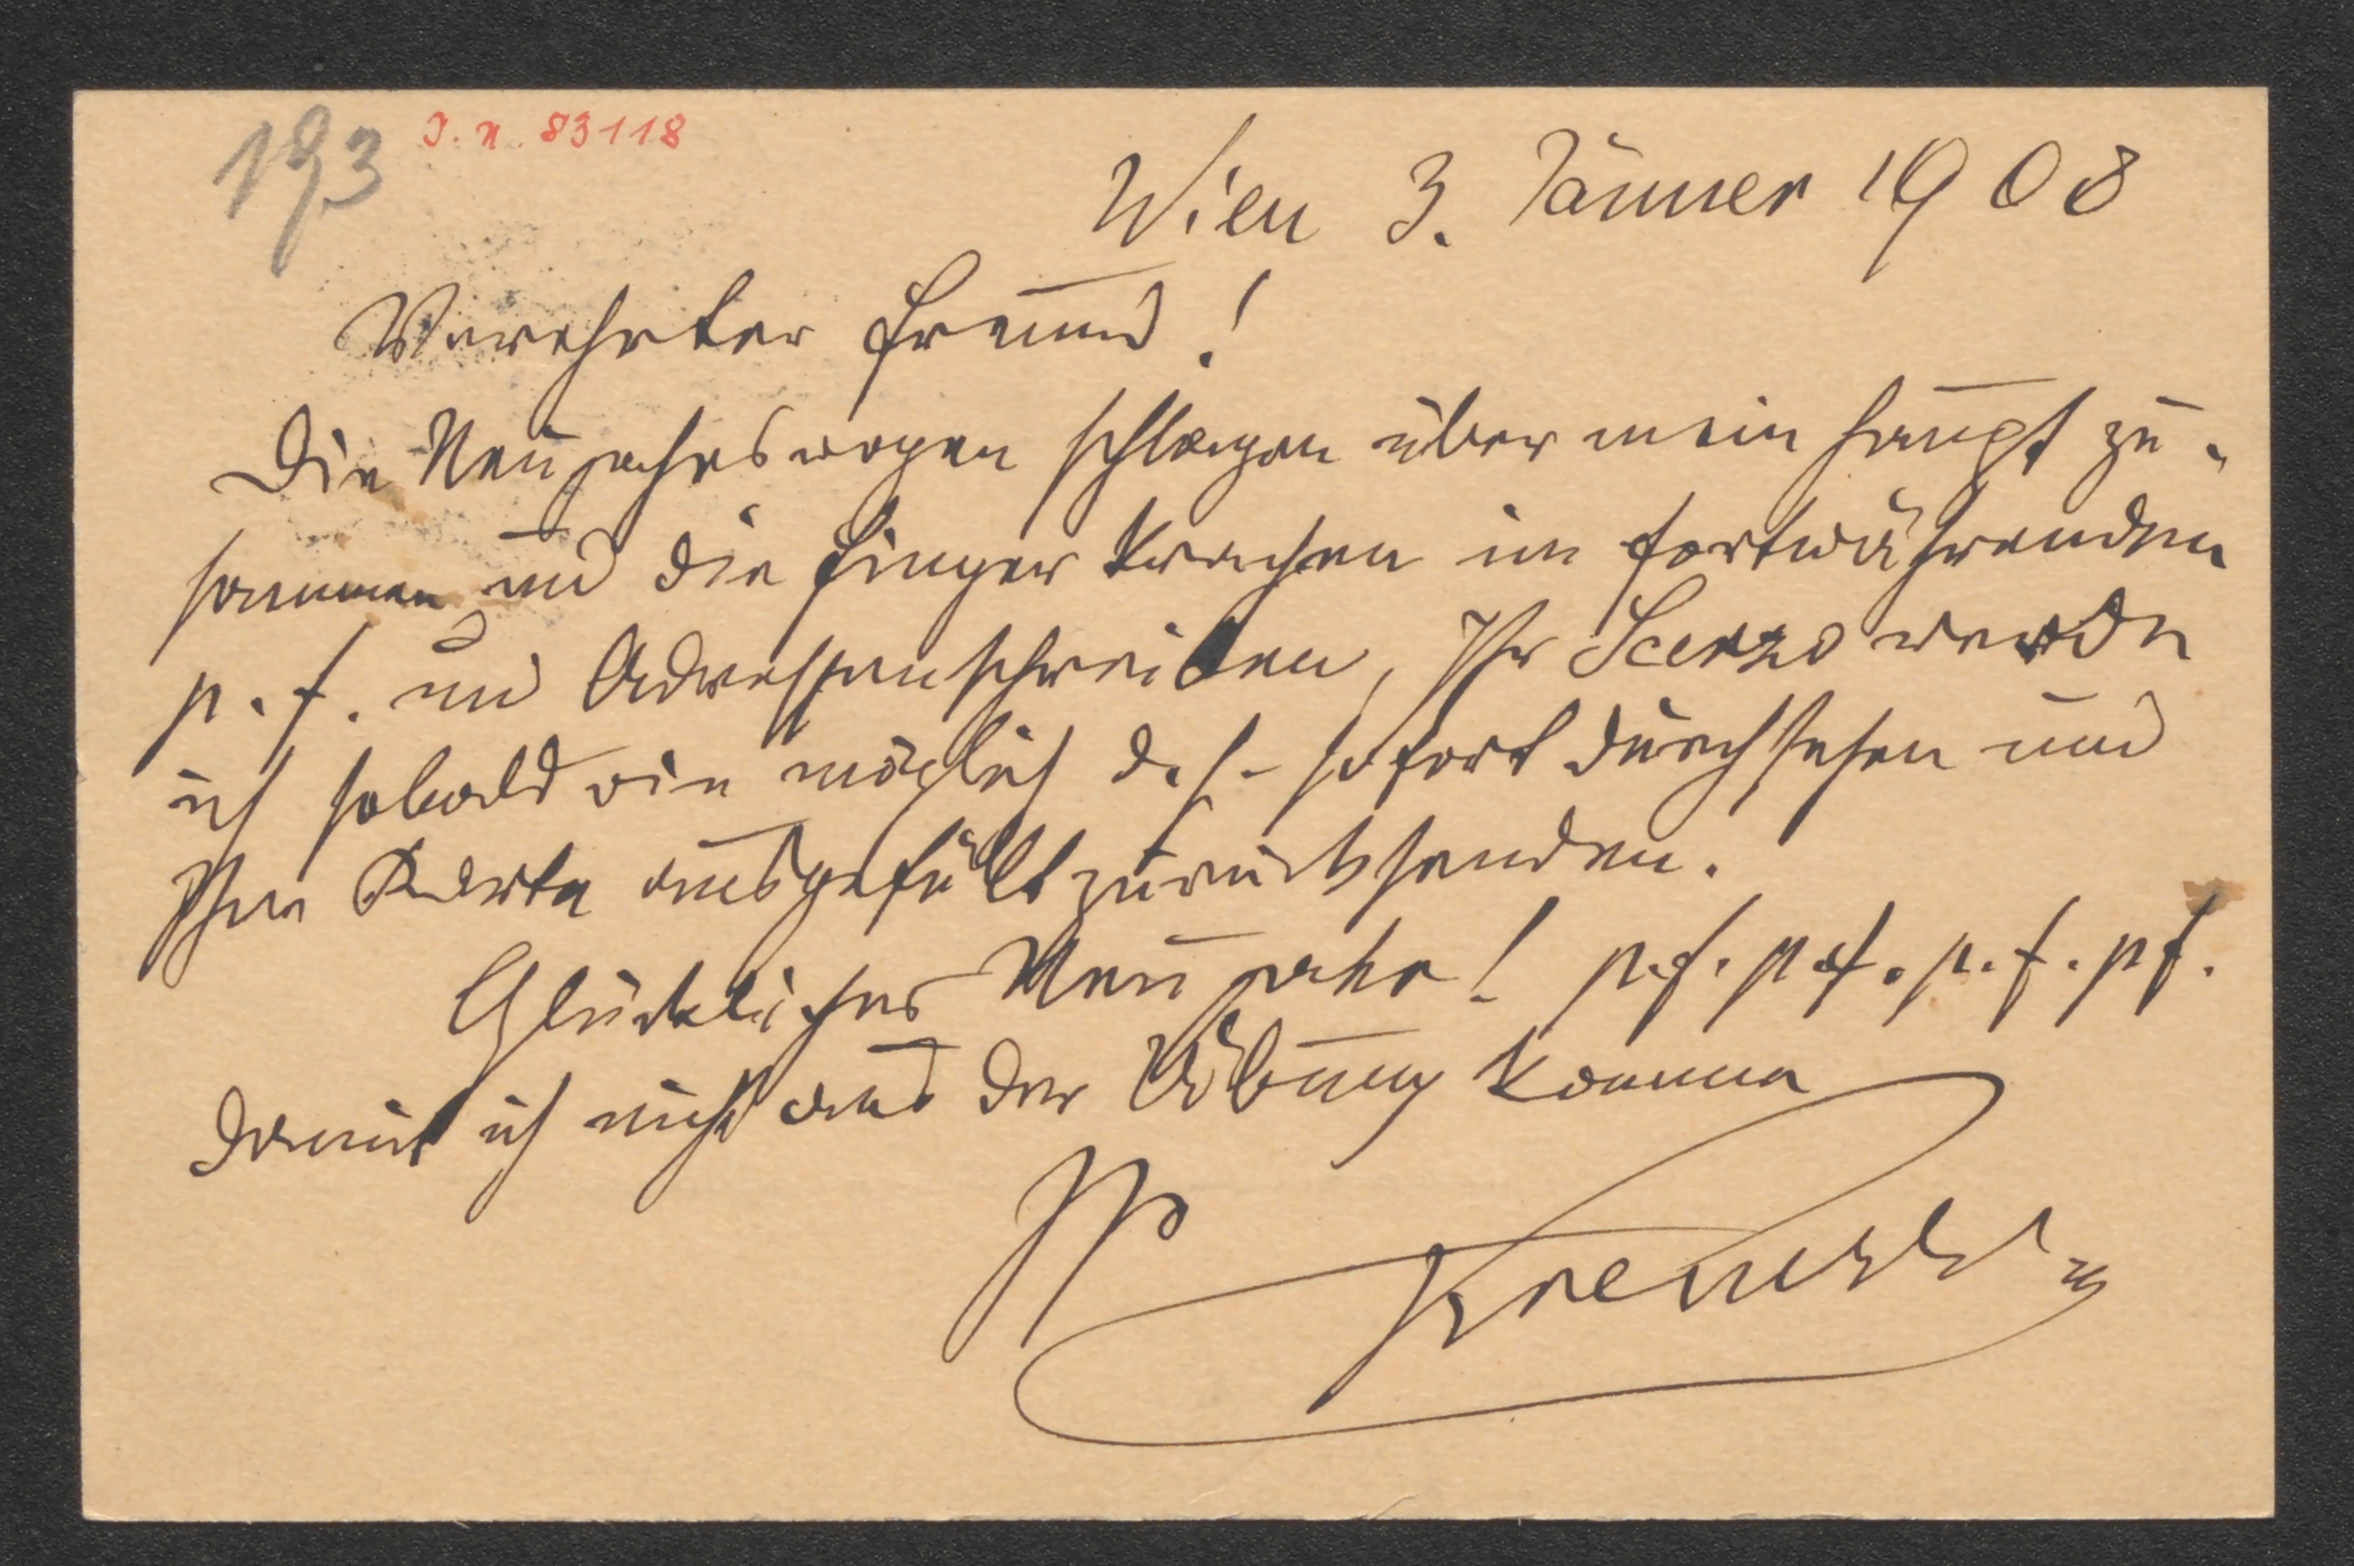 193 I. N. 83118
Wien 3. Jänner 1908
Verehrter Freund!
Die Neujahrswogen schlagen über mein Haupt zu-
sammen und die Finger krachen im fortwährenden
p. f. und Adressenschreiben, Ihr Scerzo werde
ich sobald wie möglich d. h. sofort durchsehen und
Ihre Karte ausgefüllt zurücksenden.
Glückliches Neujahr! p. f. p. f. p. f. p f.
damit ich nicht aus der Übung komme
Ihr
Kremser